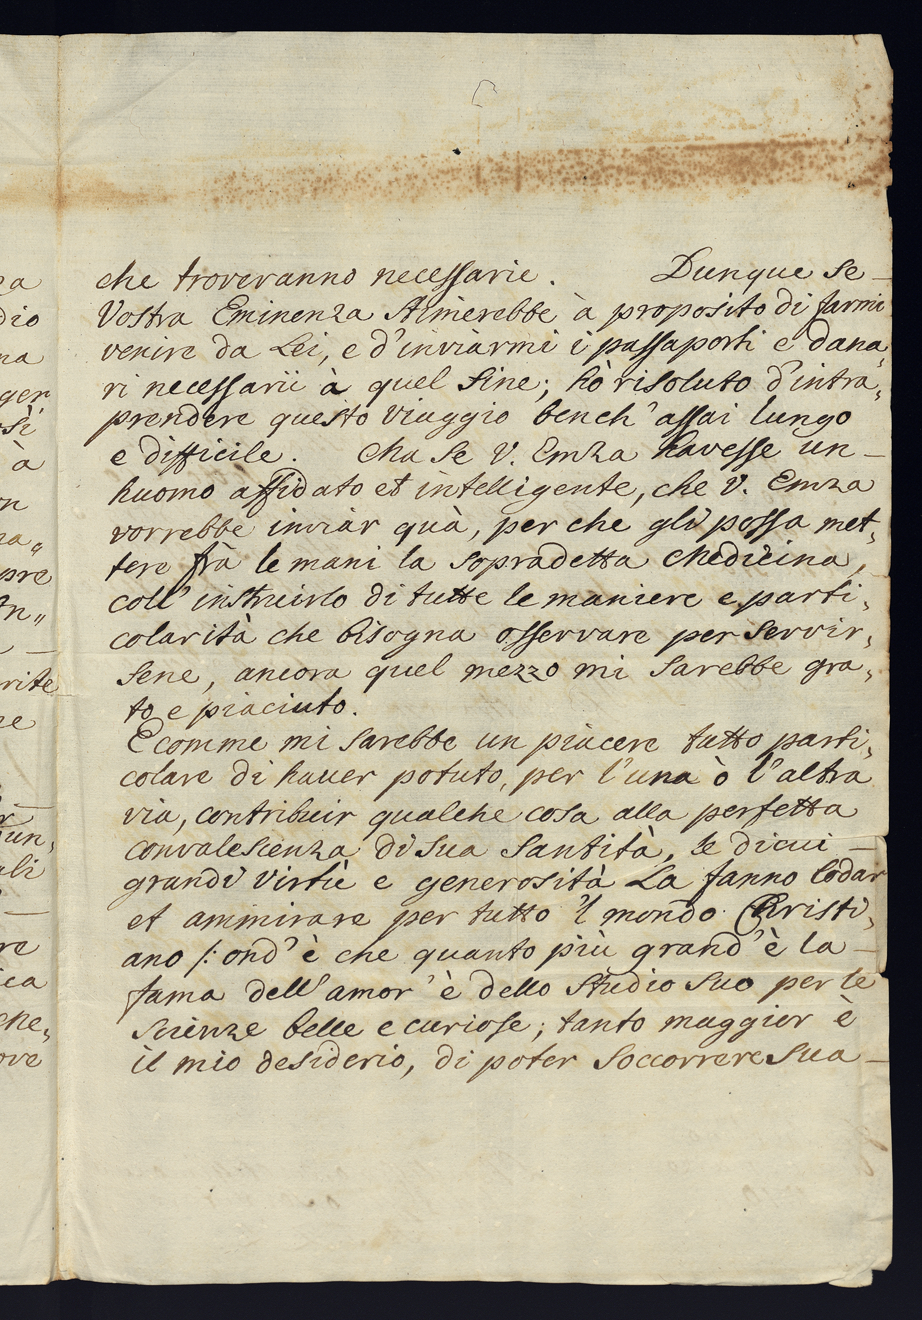 che troveranno necessarie. Dunque se
Vostra Eminenza stimerebbe à proposito di farmi
venire da Lei, e d'inviarmi i passaporti e dana„
ri necessarii à quel fine; hò risoluto d'intra„
prendere questo viaggio bench' assai lungo
e difficile. Ma se V. Emza havesse un
huomo affidato et intelligente, che V. Emza
vorrebbe inviàr quà, per che gli possa met„
tere frà le mani la sopradetta Medicina,
coll' instruirlo di tutte le maniere e parti„
colarità che bisogna osservare per servir„
sene, ancora quel mezzo mi sarebbe gra„
to e piaciuto.
E comme mi sarebbe un piacere tutto parti„
colare di haver potuto, per l'una ò l'altra
via, contribuir qualche cosa alla perfetta
convalescienza di sua Santità, le di cui
grandi virtù e generosità La fanno lodar
et ammirare per tutto 'l mondo Christi„
ano /: ond' è che quanto più grand' è la
fama dell' amor' è dello studio suo per le
scienze belle e curiose; tanto maggior è
il mio desiderio, di poter soccorrere sua